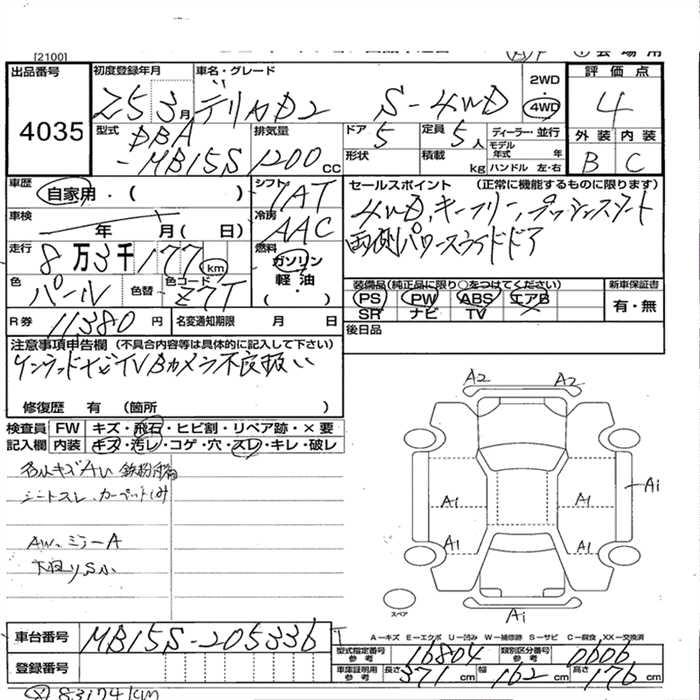 [2100]
出品番号 4035
初度登録年月 25 3月
車名・グレード デリカD2 S-4WD
2WD
4WD
評価点 4
外装 内装
B C
型式 DBA
-MB15S
排気量 1200 cc
ドア 5
定員 5人
形状
積載 kg
ディーラー・並行
モデル年式 年
ハンドル 左・右
車歴 自家用・( )
シフト 1AT
車検 年 月( 日)
冷房 AAC
走行 8万3千177 km
燃料 ガソリン
軽油
・( )
色 パール
色替
色コード Z7T
R券 11380円
名変通知期限 月 日
セールスポイント (正常に機能するものに限ります)
4WD、キーフリー、プッシュスタート
両側パワースライドドア
装備品(純正品に限り○をつけてください)
PS PW ABS エアB
SR ナビ TV
新車保証書
有・無
後日品
注意事項申告欄 (不具合内容等は具体的に記入して下さい)
インランドナビTVBカメラ不良扱い
修復歴 有 (箇所 )
検査員記入欄
FW キズ・飛石・ヒビ割・リペア跡・×要
内装 キズ・汚レ・コゲ・穴・スレ・キレ・破レ
シートスレ、カーペットしみ
AW、ミラーA
下回りSか
A2 A2
A1 A1 A1
A1 A1
A1
スペア
A−キズ E−エクボ U−凹み W−補修跡 S−サビ C−腐食 XX−交換済
車台番号 MB15S-205336
登録番号
型式指定番号 参考 16804
類別区分番号 参考 0606
車庫証明用 参考 長さ 371cm 幅 162cm 高さ 176cm
83174km